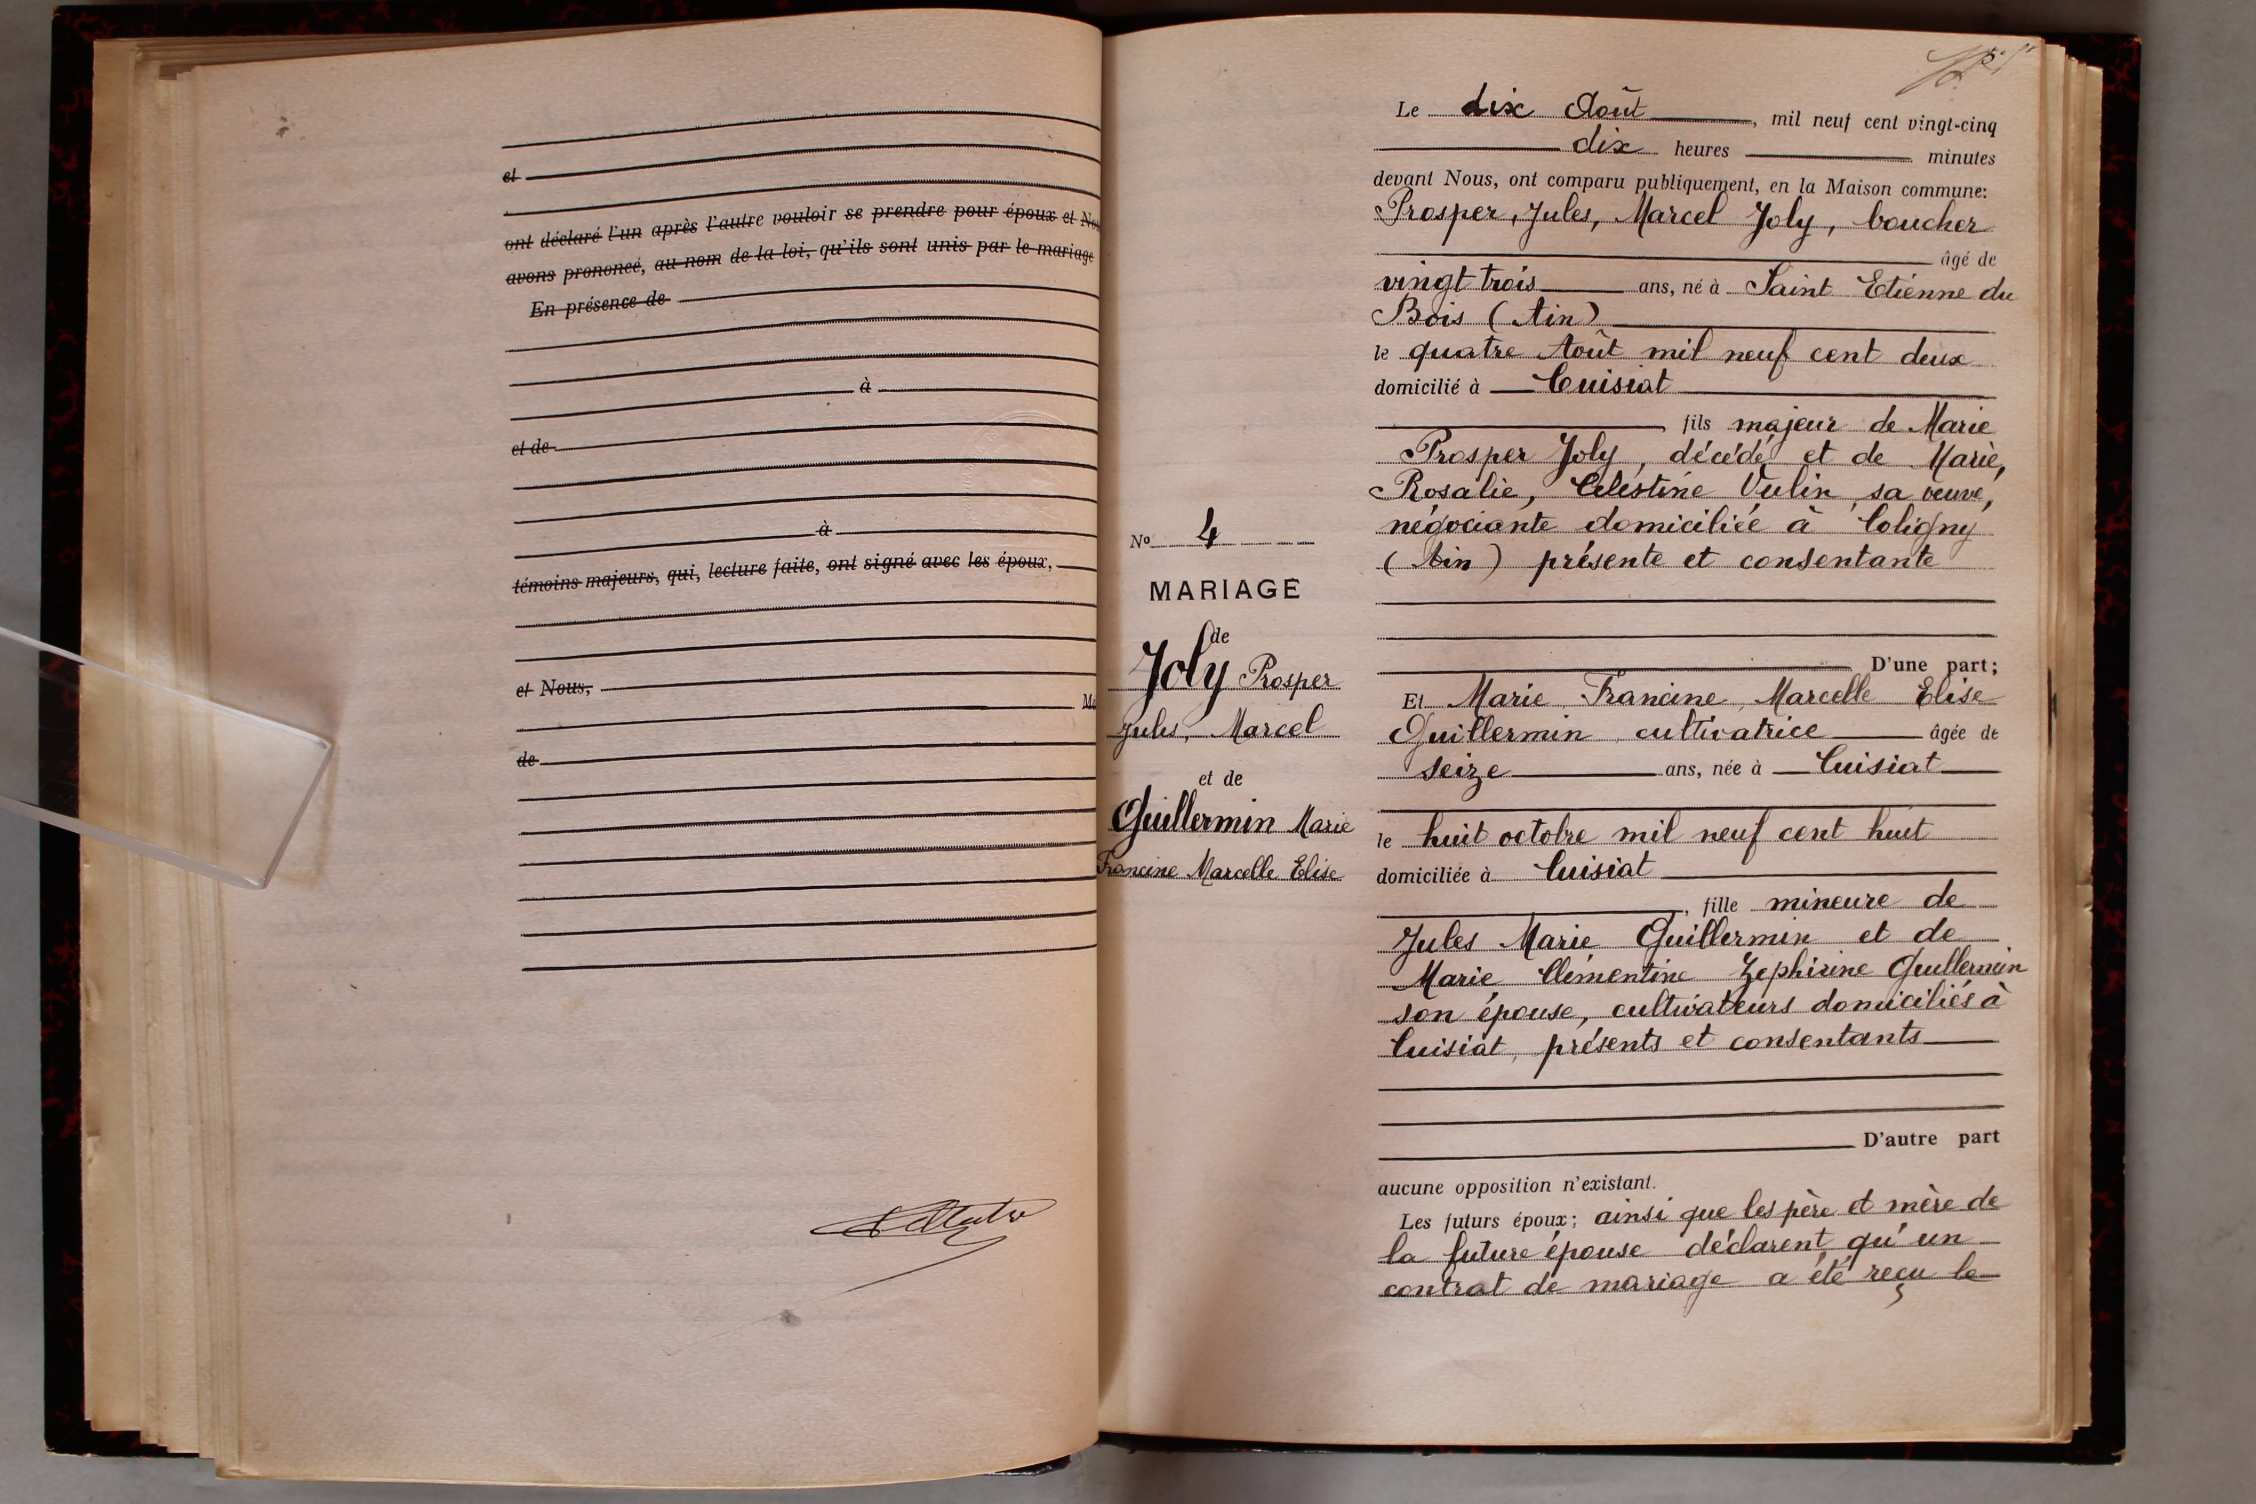 et
ont déclaré l'un après l'autre vouloir se prendre pour époux et
avons prononcé, au nom de la loi, qu'ils sont unis par le mariage
En présence de
à
et de
à
témoins majeurs, qui, lecture faite, ont signé avec les époux,
et Nous,
de
Le dix Août, mil neuf cent vingt-cinq
dix heures minutes
devant Nous, ont comparu publiquement, en la Maison commune:
Prosper, Jules, Marcel Joly, boucher
âgé de
vingt trois ans, né à Saint Etienne du
Bois (Ain)
le quatre Août mil neuf cent deux
domicilié à Cuisiat
fils majeur de Marie
Prosper Joly, décédé et de Marie,
Rosalie, Celestine Vulin, sa veuve,
négociante domiciliée à Coligny
(Ain) présente et consentante
D'une part;
No 4
MARIAGE
de
Joly Prosper
Jules, Marcel
et de
Guillermin Marie
Francine Marcelle Elise
Et Marie Francine, Marcelle Elise
Guillermin cultivatrice âgée de
seize ans, née à Cuisiat
le huit octobre mil neuf cent huit
domiciliée à Cuisiat
, fille mineure de
Jules Marie Guillermin et de
Marie Clémentine Zephirine Guillermin
son épouse, cultivateurs domiciliés à
Cuisiat, présents et consentants
D'autre part
aucune opposition n'existant.
Les futurs époux; ainsi que les père et mère de
la future épouse déclarent qu'un
contrat de mariage a été reçu le